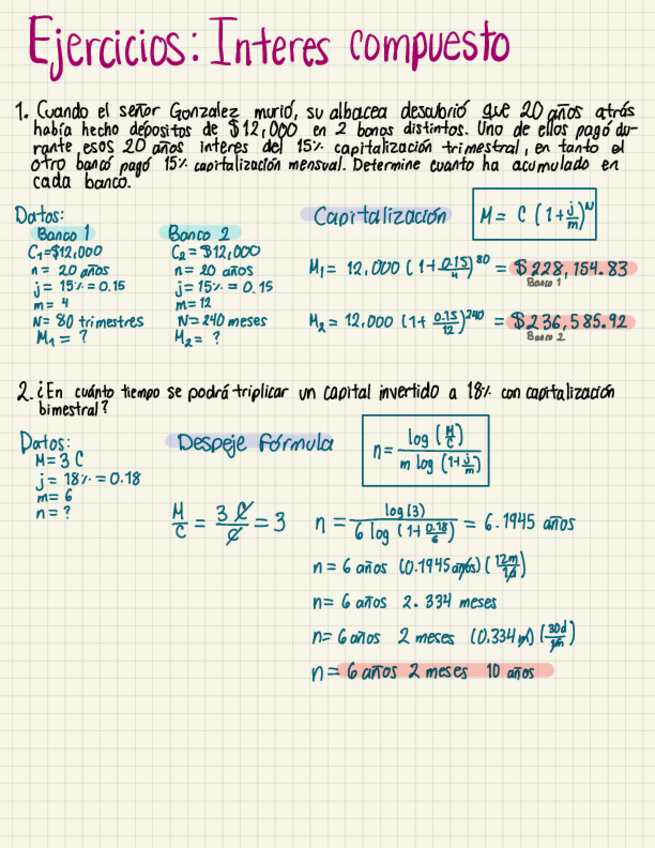 Ejercicios: Interes compuesto
1. Cuando el señor Gonzalez murió, su albacea descubrió que 20 años atrás
había hecho depositos de $12,000 en 2 bonos distintos. Uno de ellos pagó du-
rante esos 20 años interes del 15% capitalización trimestral, en tanto el
otro banco pagó 15% capitalización mensual. Determine cuanto ha acumulado en
cada banco.
Datos:
Banco 1
C₁=$12,000
n = 20 años
j = 15% = 0.15
m = 4
N= 80 trimestres
M₁ = ?
Banco 2
C₂ = $12,000
n = 20 años
j = 15% = 0.15
m = 12
N=240 meses
M₂ = ?
Capitalización
M = C (1+j/m)^N
M₁ = 12,000 (1+0.15/4)^80 = $228,154.83
Banco 1
M₂ = 12,000 (1+ 0.15/12)^240 = $236,585.92
Banco 2
2. ¿En cuánto tiempo se podrá triplicar un capital invertido a 18% con capitalización
bimestral?
Datos:
M= 3 C
j = 18% = 0.18
m = 6
n = ?
Despeje fórmula
n = log (M/C) / m log (1+j/m)
M/C = 3C/C = 3
n = log(3) / 6 log (1+ 0.18/6) = 6.1945 años
n = 6 años (0.1945 años) (12m/1a)
n= 6 años 2.334 meses
n= 6 años 2 meses (0.334 m) (30d/1m)
n = 6 años 2 meses 10 años